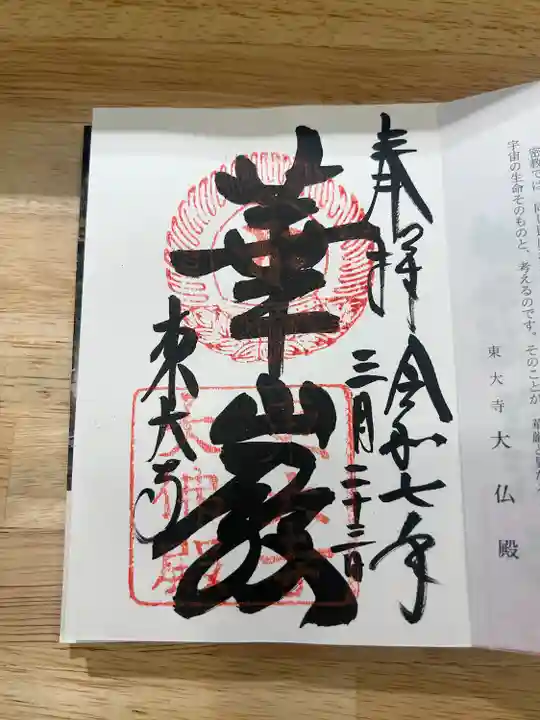 宇宙の生命そのものと、考えるのです。そのことが
東大寺 大仏殿
奉拝 令和七年
三月二十三日
華厳
東大寺